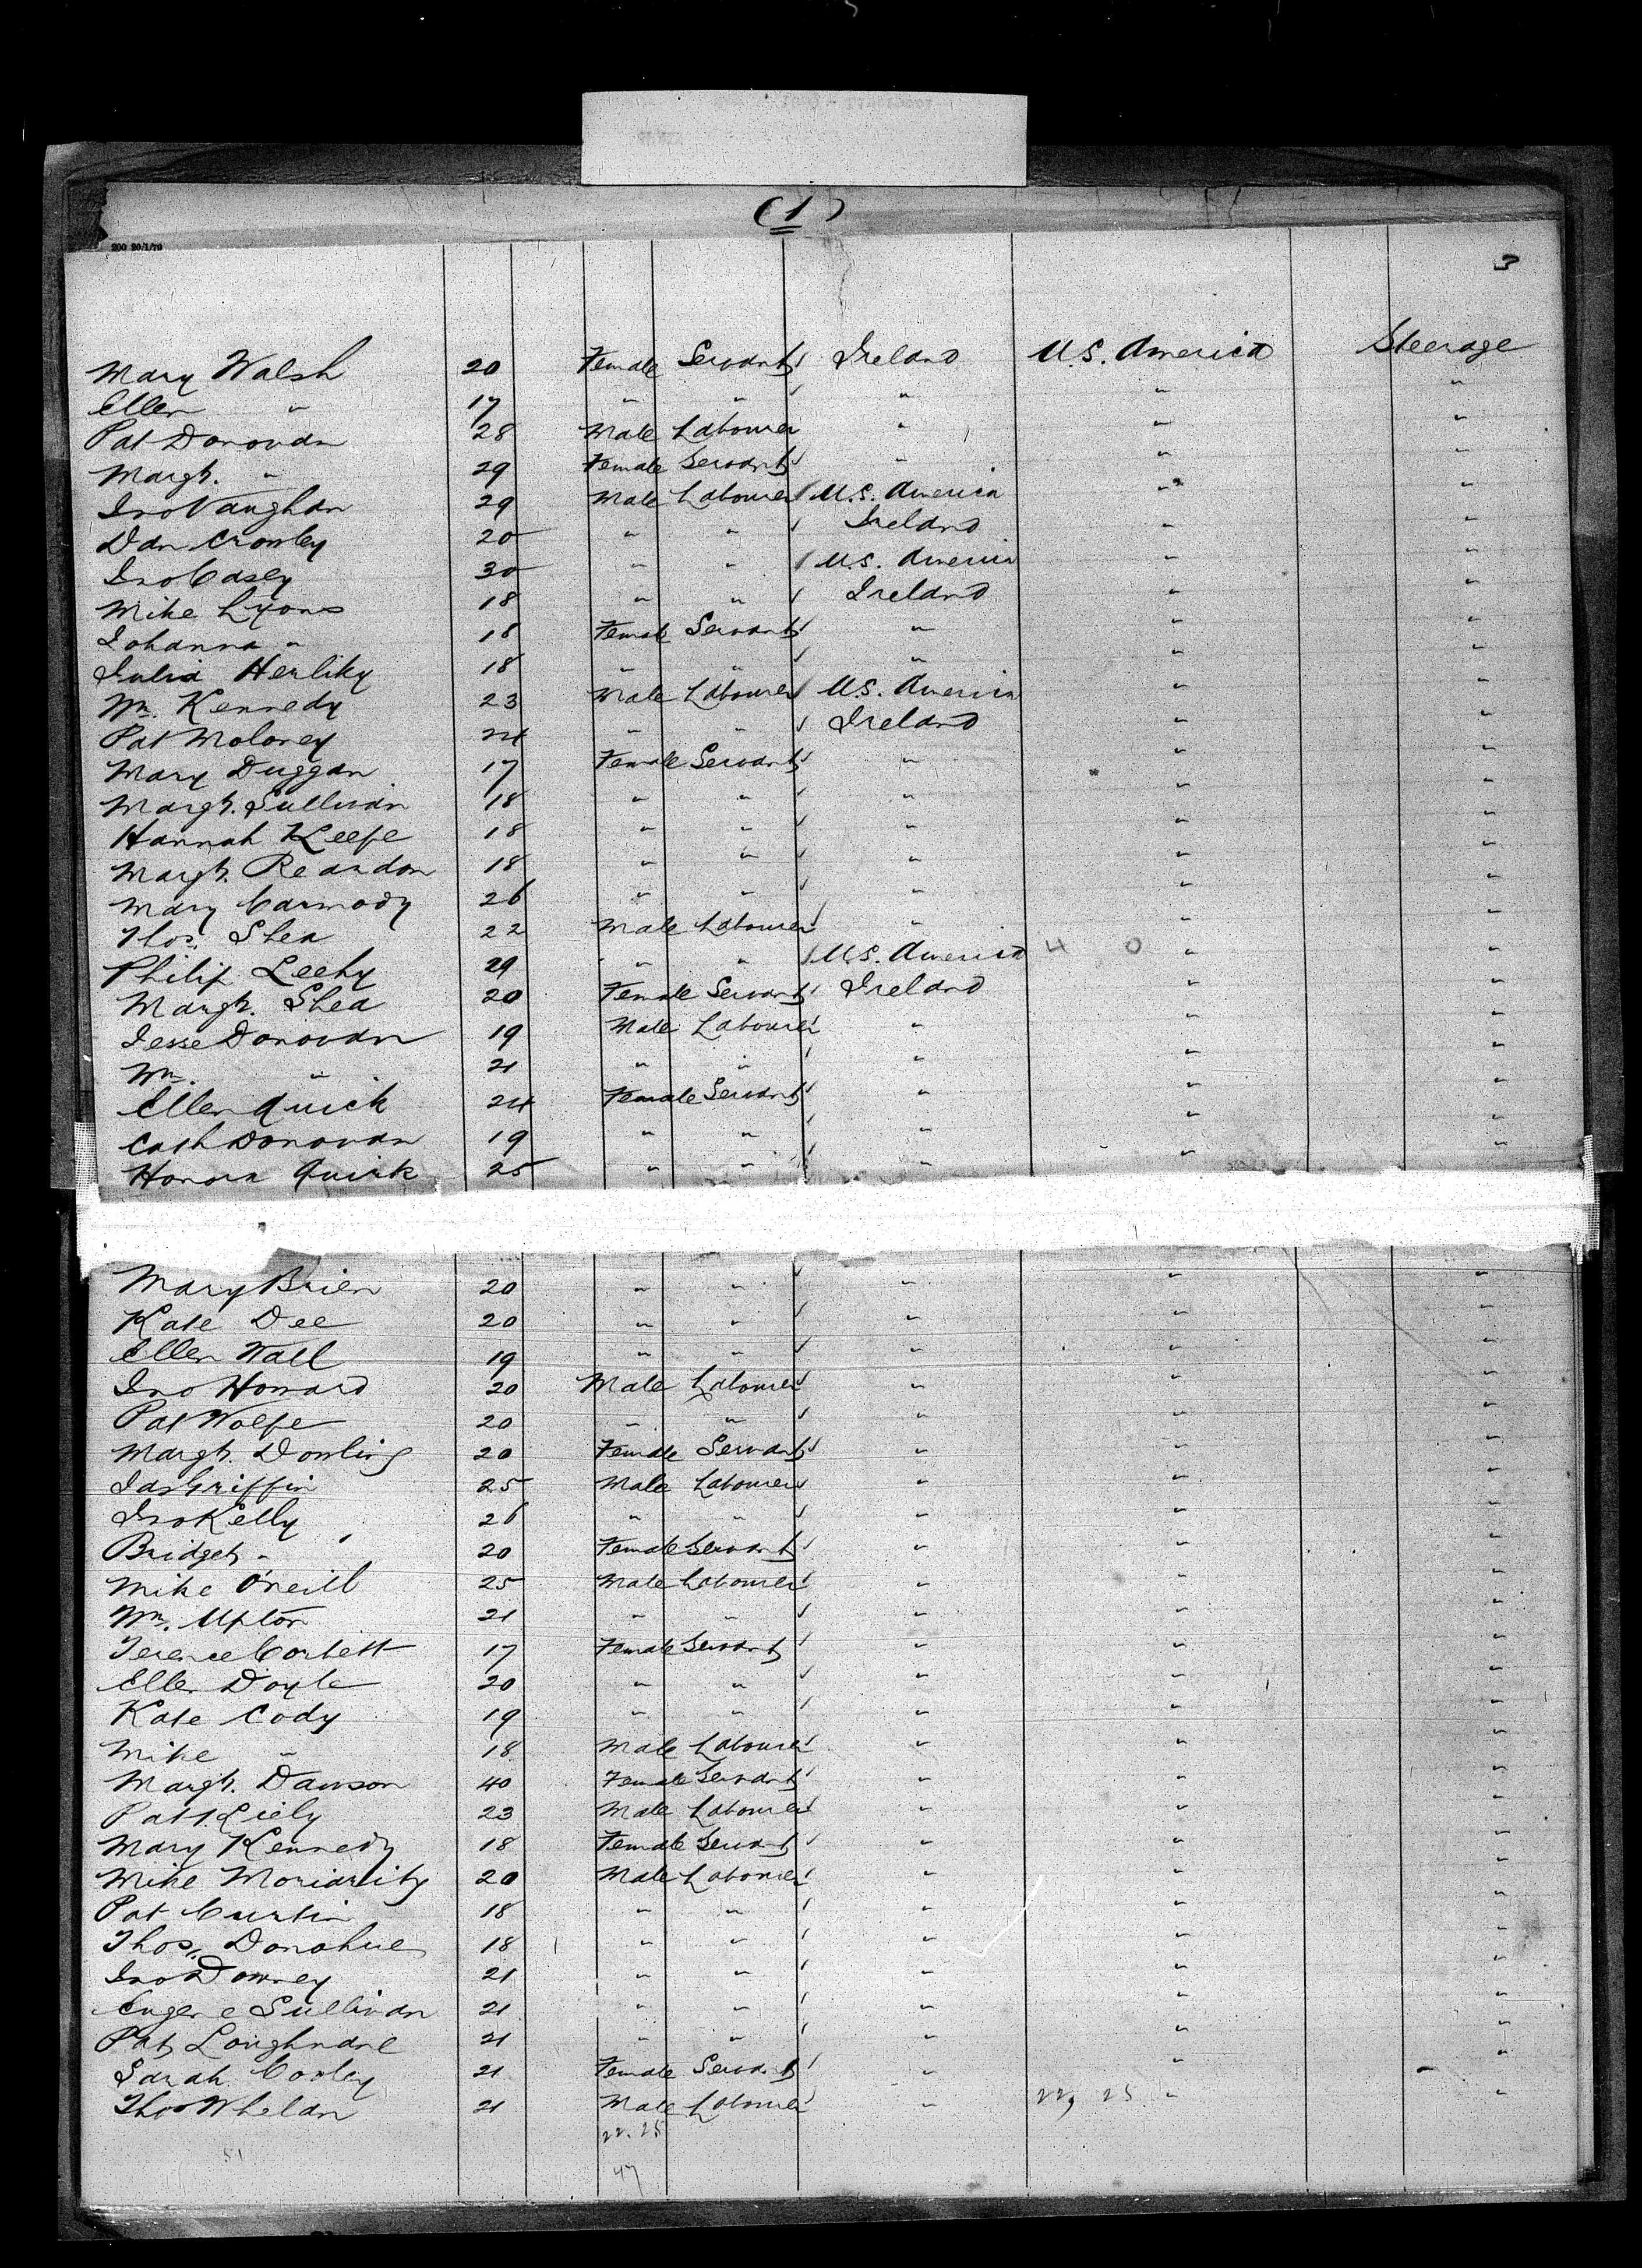 (1)
200 20/1/79
3
Mary Walsh 20 Female Servant Ireland U.S. America Steerage
Ellen " 17 " " " " "
Pat Donovan 28 Male Labourer " " "
Margt. " 29 Female Servant " " "
Jno Vaughan 29 Male Labourer U.S. America " "
Dan Crowley 20 " " Ireland " "
Jno Casey 30 " " U.S. America " "
Mike Lyons 18 " " Ireland " "
Johanna " 18 Female Servant " " "
Julia Herlihy 18 " " " " "
Wm. Kennedy 23 Male Labourer U.S. America " "
Pat Moloney 24 " " Ireland " "
Mary Duggan 17 Female Servant " " "
Margt. Sullivan 18 " " " " "
Hannah Keefe 18 " " " " "
Margt. Reardon 18 " " " " "
Mary Carmody 26 " " " " "
Thos. Shea 22 Male Labourer " " "
Philip Leehy 29 " " U.S. America 4 0 " "
Margt. Shea 20 Female Servant Ireland " "
Jesse Donovan 19 Male Labourer " " "
Wm. " 21 " " " " "
Ellen Quick 24 Female Servant " " "
Cath Donovan 19 " " " " "
Honora Quirk 25 " " " " "
Mary Brien 20 " " " " "
Kate Dee 20 " " " " "
Ellen Wall 19 " " " " "
Jno Howard 20 Male Labourer " " "
Pat Wolfe 20 " " " " "
Margt. Dowling 20 Female Servant " " "
Jas Griffin 25 Male Labourer " " "
Jno Kelly 26 " " " " "
Bridget " 20 Female Servant " " "
Mike O'Neill 25 Male Labourer " " "
Wm. Upton 21 " " " " "
Terence Corbett 17 Female Servant " " "
Ellen Doyle 20 " " " " "
Kate Cody 19 " " " " "
Mike " 18 Male Labourer " " "
Margt. Dawson 40 Female Servant " " "
Pat Kiely 23 Male Labourer " " "
Mary Kennedy 18 Female Servant " " "
Mike Moriarity 20 Male Labourer " " "
Pat Curtin 18 " " " " "
Thos. Donohue 18 " " " " "
Jno Downey 21 " " " " "
Eugene Sullivan 21 " " " " "
Pat Loughnane 21 " " " " "
Sarah Conley 21 Female Servant " " "
Thos Whelan 21 Male Labourer " 22, 25 " "
22. 25
51
47